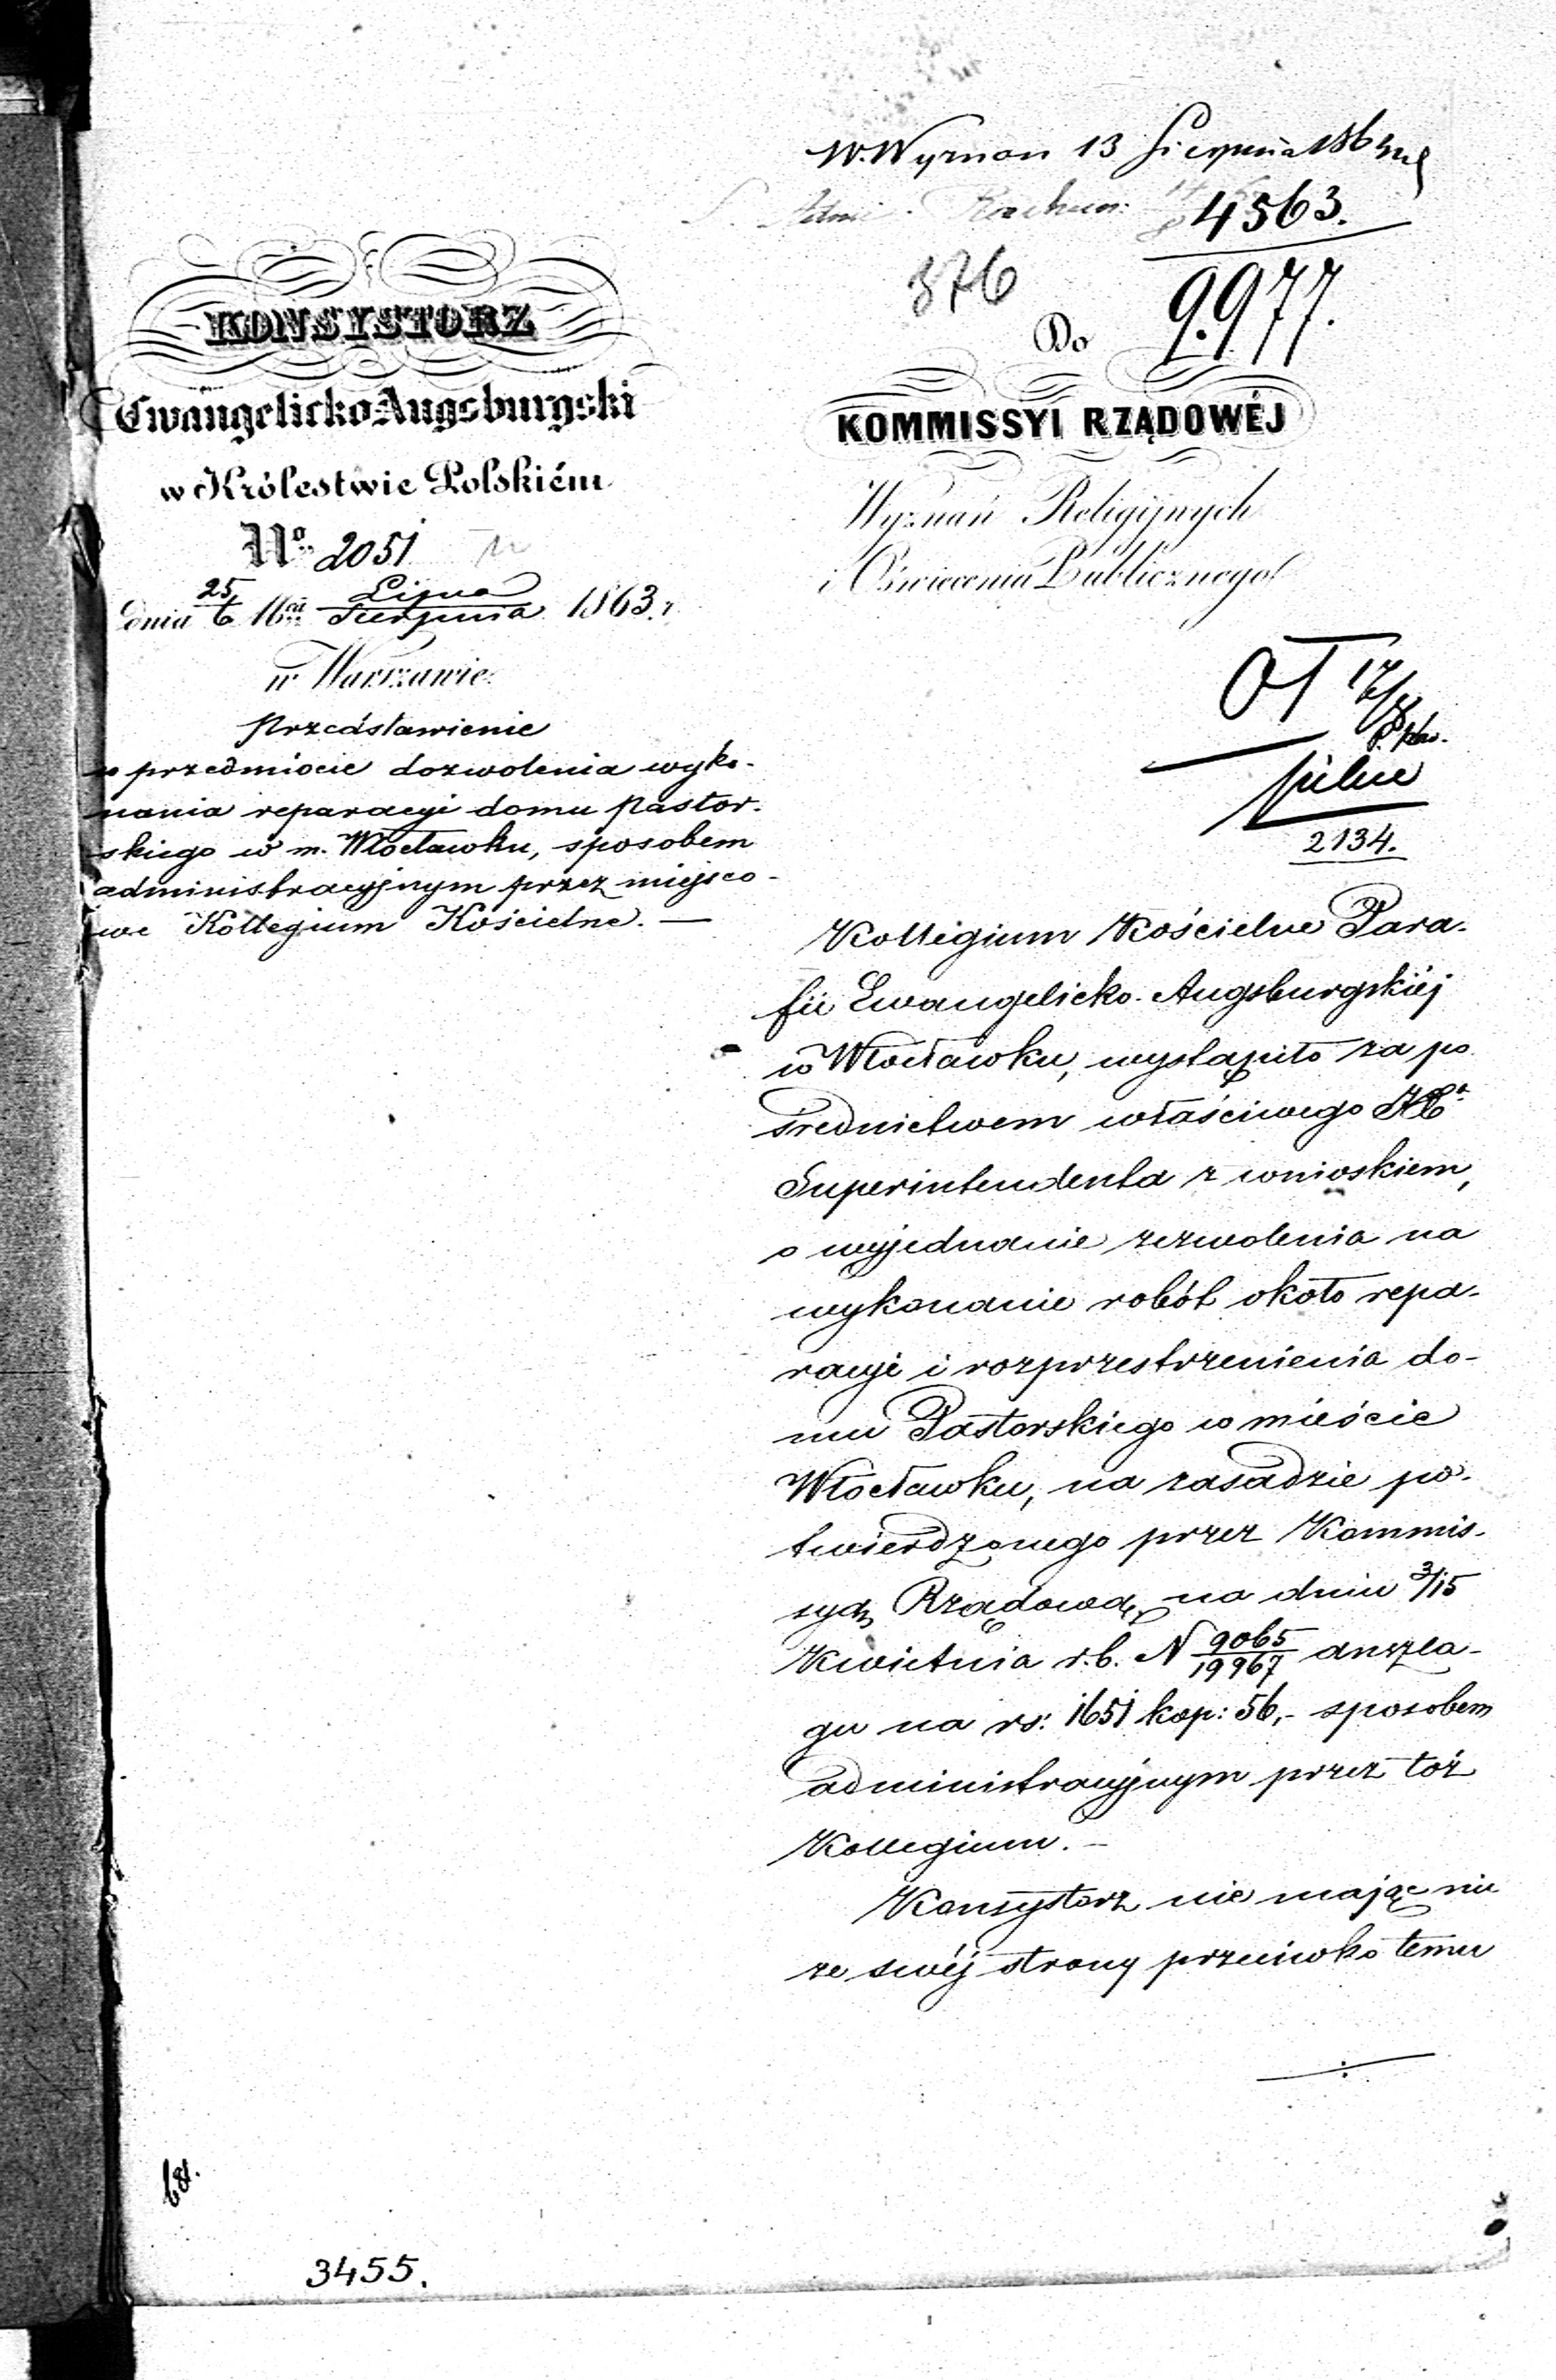 W. Wyznań 13 Sierpnia 1863
4563.
376
9.977.
KONSYSTORZ
Ewangelicko-Augsburgski
w Królestwie Polskiém
No. 2051
dnia 25/6 Mca Lipca/Sierpnia 1863 r.
w Warszawie.
Przedstawienie
w przedmiocie dozwolenia wyko-
nania reparacyi domu Pastor-
skiego w m. Włocławku, sposobem
administracyjnym przez miejsco-
we Kollegium Kościelne. —
Do
KOMMISSYI RZĄDOWÉJ
Wyznań Religijnych
i Oświecenia Publicznego
pilne
2134.
Kollegium Kościelne Para-
fii Ewangelicko-Augsburgskiéj
w Włocławku, wystąpiło za po
średnictwem właściwego
Superintendenta z wnioskiem,
o wyjednanie zezwolenia na
wykonanie robót około repa-
racyi i rozprzestrzenienia do-
mu Pastorskiego w mieście
Włocławku, na zasadzie po-
twierdzonego przez Kommis-
syą Rządową na dniu 3/15
Kwietnia r.b. N 9065/19967 anszla-
gu na rs: 1651 kop: 56,- sposobem
administracyjnym przez toż
Kollegium. –
Konsystorz nie mając nic
ze swéj strony przeciwko temu
68.
3455.